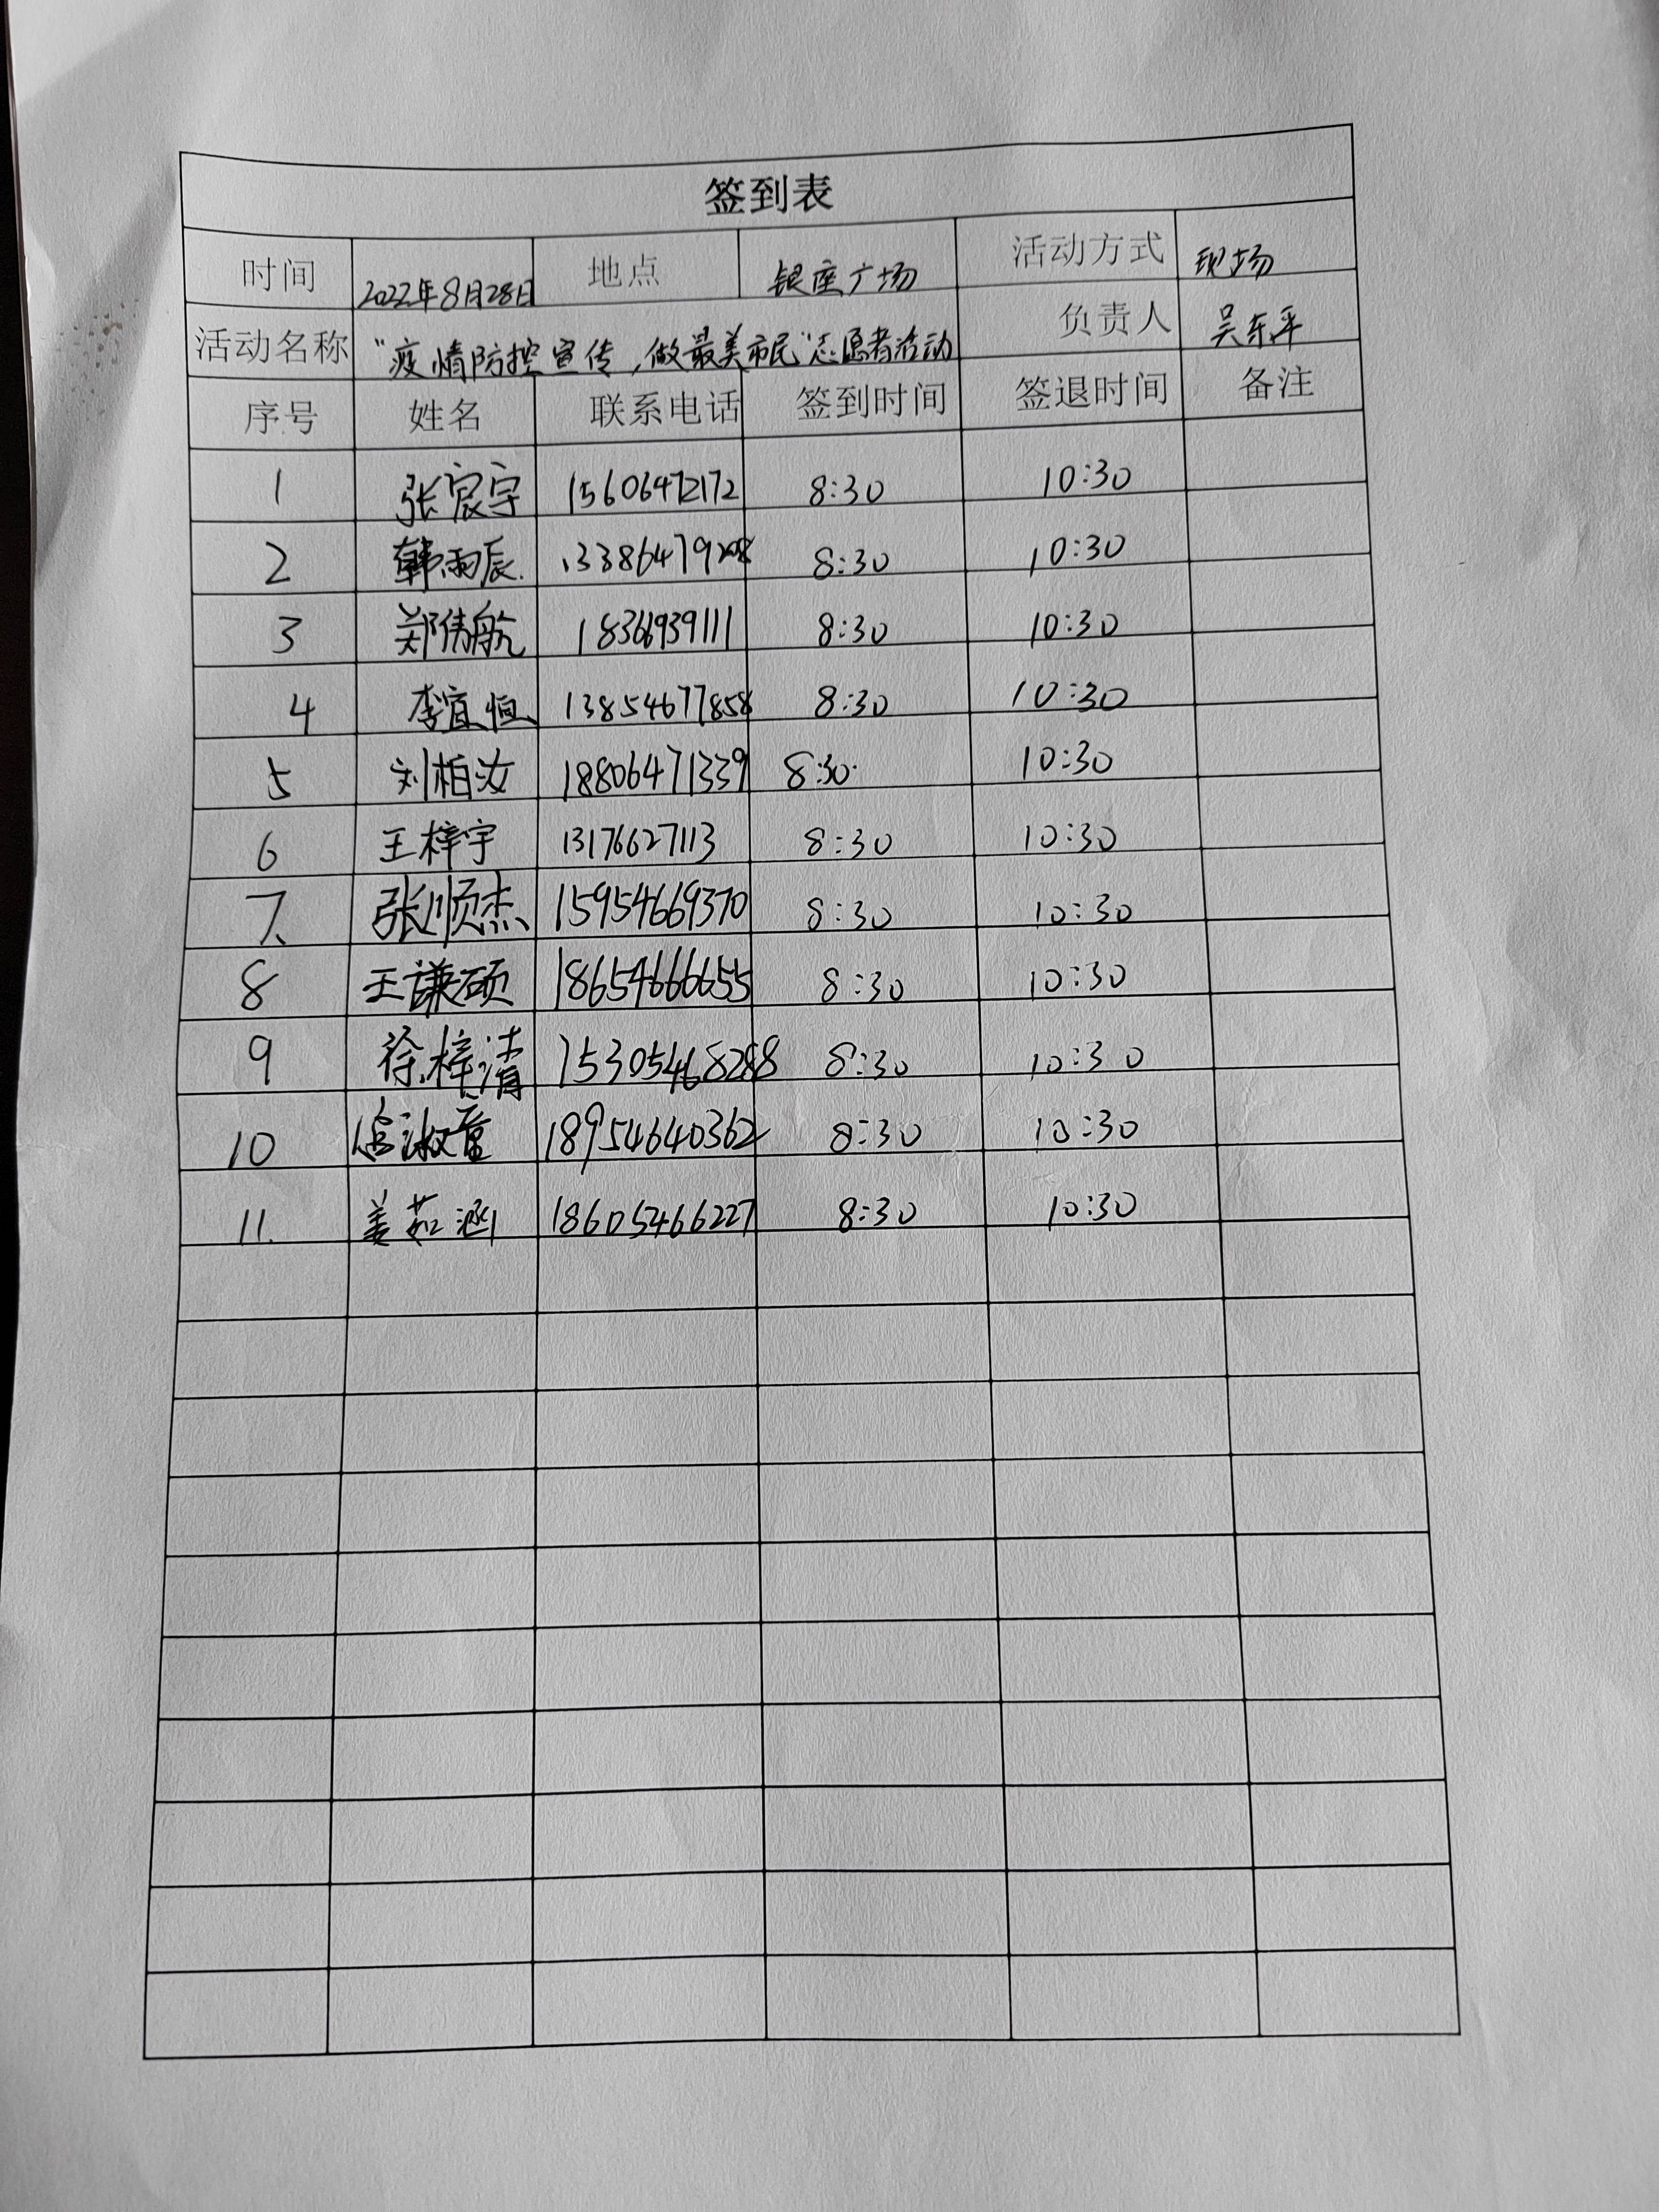 签到表
时间 2022年8月28日 地点 银座广场 活动方式 现场
活动名称 "疫情防控宣传,做最美市民"志愿者活动 负责人 吴东平
序号 姓名 联系电话 签到时间 签退时间 备注
1 张宸宇 15606472172 8:30 10:30
2 韩雨辰 8:30 10:30
3 郑伟航 18366939111 8:30 10:30
4 李宜恒 13854677858 8:30 10:30
5 刘柏汝 18806471339 8:30 10:30
6 王梓宇 13176627113 8:30 10:30
7、 张顺杰 15954669370 8:30 10:30
8 王谦硕 18654666655 8:30 10:30
9 徐梓清 15305468288 8:30 10:30
10 18954640362 8:30 10:30
11. 姜茹涵 18605466227 8:30 10:30